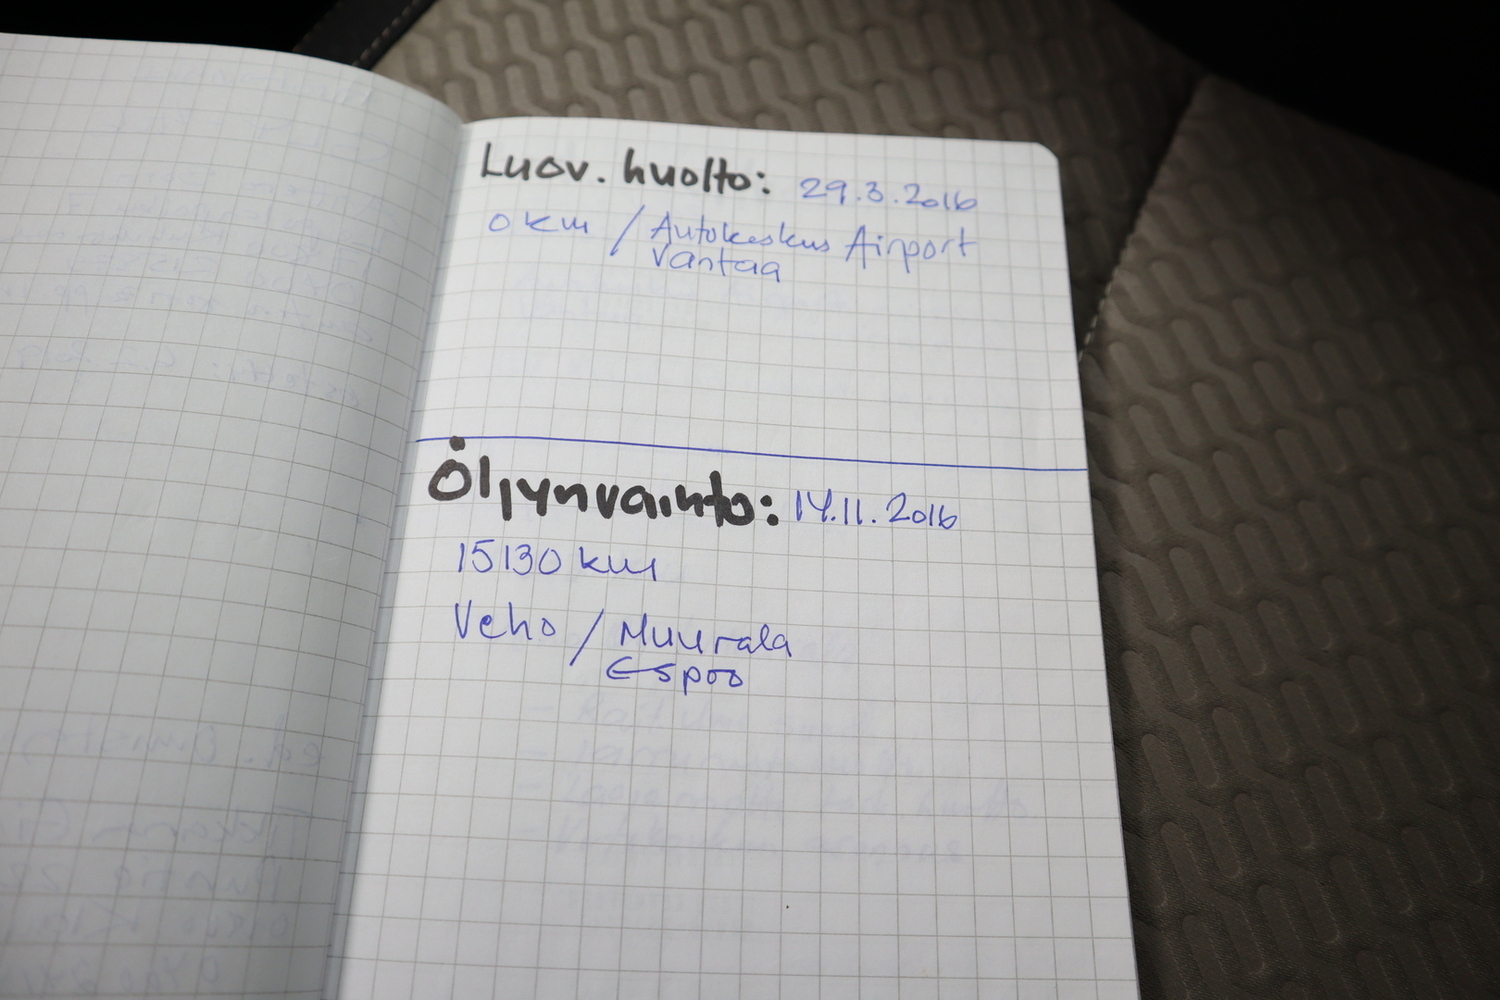 Luov. huolto: 29.3.2016
0 km / Autokeskus Airport
Vantaa
Öljynvaihto: 14.11.2016
15130 km
Veho / Muurala
Espoo